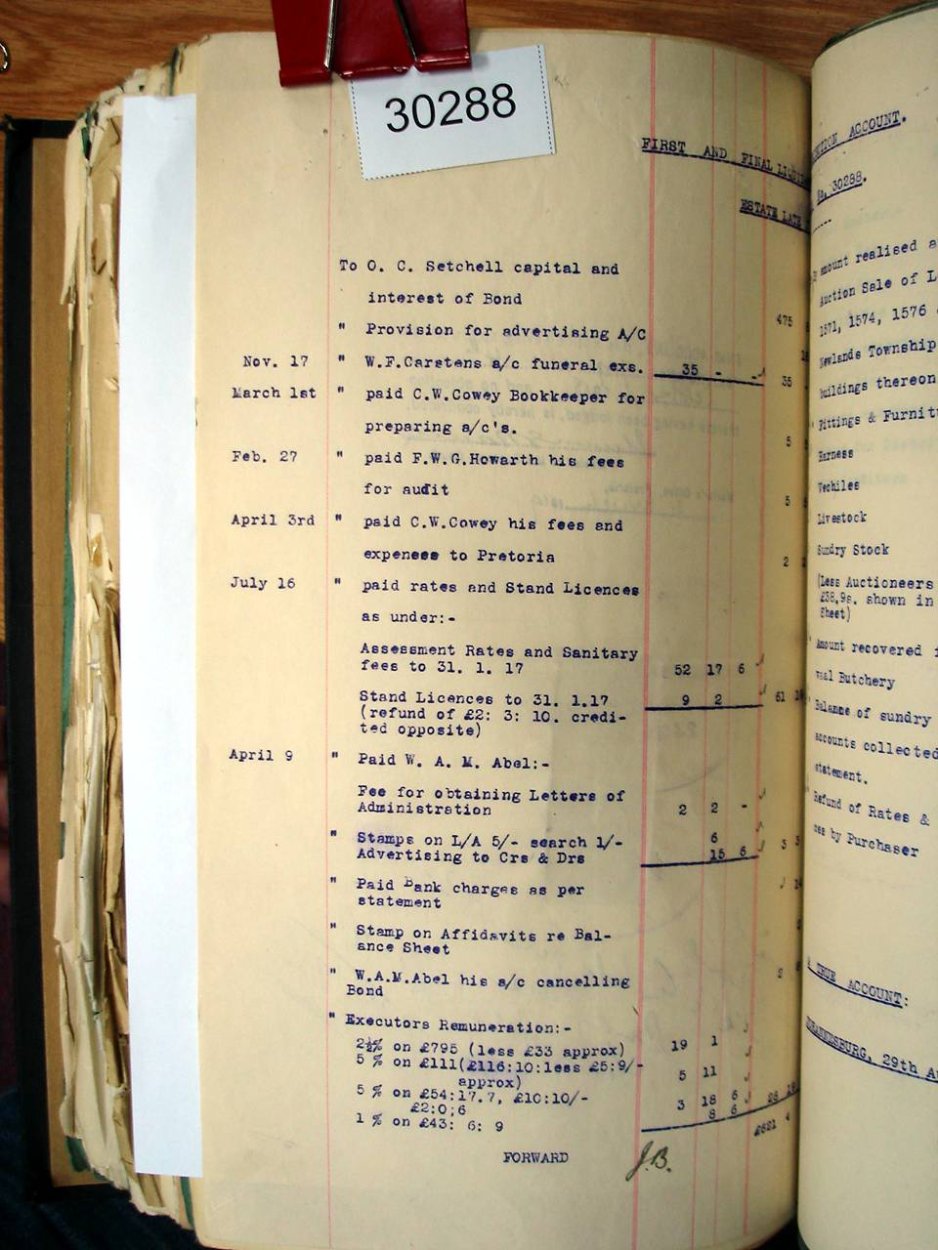 30288
FIRST AND FINAL
ESTATE LATE
To O. C. Setchell capital and
interest of Bond 475
" Provision for advertising A/C
Nov. 17 " W.F.Carstens a/c funeral exs. 35 - - 35
March 1st " paid C.W.Cowey Bookkeeper for
preparing a/c's. 5
Feb. 27 " paid F.W.G.Howarth his fees
for audit 5
April 3rd " paid C.W.Cowey his fees and
expenses to Pretoria 2
July 16 " paid rates and Stand Licences
as under:-
Assessment Rates and Sanitary
fees to 31. 1. 17 52 17 6
Stand Licences to 31. 1.17 9 2 61
(refund of £2: 3: 10. credi-
ted opposite)
April 9 " Paid W. A. M. Abel:-
Fee for obtaining Letters of
Administration 2 2 -
" Stamps on L/A 5/- search 1/- 6
Advertising to Crs & Drs 15 6 3
" Paid Bank charges as per
statement
" Stamp on Affidavits re Bal-
ance Sheet
" W.A.M.Abel his a/c cancelling 2
Bond
" Executors Remuneration:-
2½% on £795 (less £33 approx) 19 1
5 % on £111(£116:10:less £5:9/- 5 11
approx)
5 % on £54:17.7, £10:10/- 3 18 6
£2:0;6 8 6
1 % on £43: 6: 9
£621 4
FORWARD
J.B.
ACCOUNT.
No. 30288.
amount realised
Auction Sale of
1571, 1574, 1576
Newlands Township
buildings thereon
Fittings &
Harness
Vechiles
Livestock
Sundry Stock
(Less Auctioneers
£38.9s. shown in
Sheet)
Amount recovered
Butchery
Balance of sundry
accounts collected
statement.
Refund of Rates &
by Purchaser
TRUE ACCOUNT:
JOHANNESBURG, 29th